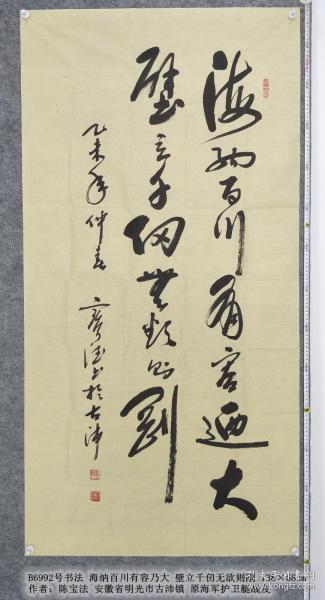 海納百川有容迺大
壁立千仞無欲則剛
乙未年仲春 寶法书於古沛
B6992号书法 海纳百川有容乃大 壁立千仞无欲则刚
作者： 陈宝法 安徽省明光市古沛镇 原海军护卫艇战友